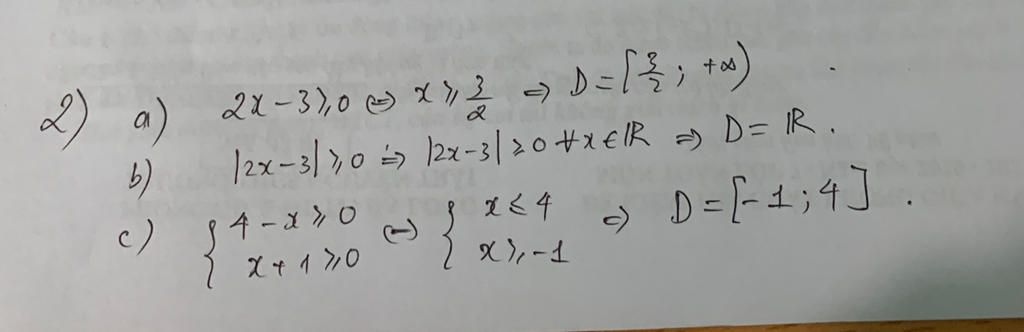 2) a) 2x - 3 ≥ 0 ⇔ x ≥ 3/2 ⇒ D = [3/2 ; +∞)
b) |2x-3| ≥ 0 ⇒ |2x-3| ≥ 0 ∀x ∈ ℝ ⇒ D = ℝ.
c) { 4 - x ≥ 0 ⇔ { x ≤ 4 ⇒ D = [-1 ; 4].
x + 1 ≥ 0 x ≥ -1